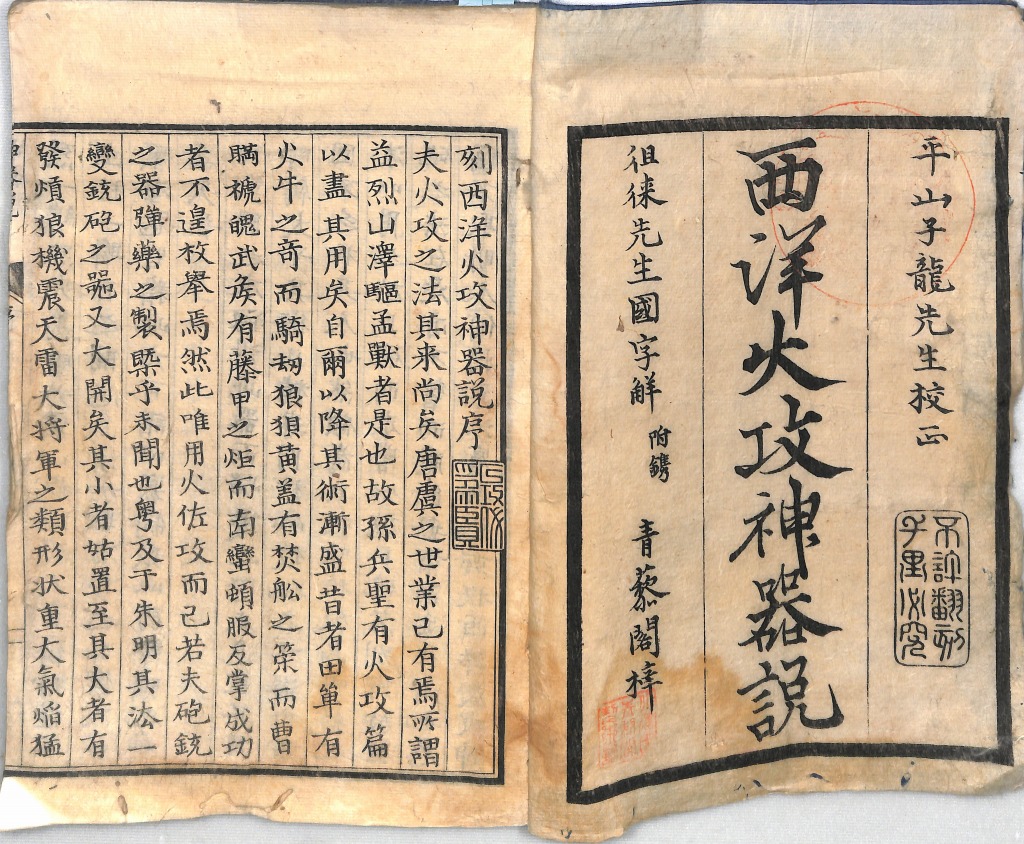 平山子龍先生校正
不許翻刻
千里必究
西洋火攻神器説
徂徠先生國字解 附鐫 青藜閣梓
刻西洋火攻神器説序
夫火攻之法其来尚矣唐虞之世業已有焉所謂
益烈山澤驅孟獸者是也故孫兵聖有火攻篇
以盡其用矣自爾以降其術漸盛昔者田単有
火牛之奇而騎劫狼狽黄盖有焚舩之筞而曹
瞞褫魄武矦有藤甲之炬而南蠻頓服反掌成功
者不遑枚舉焉然此唯用火佐攻而已若夫砲銃
之器彈藥之製槩乎未聞也粤及于朱明其法一
變銃砲之噐又大開矣其小者姑置至其大者有
發熕狼機震天雷大将軍之類形状重大氣焔猛